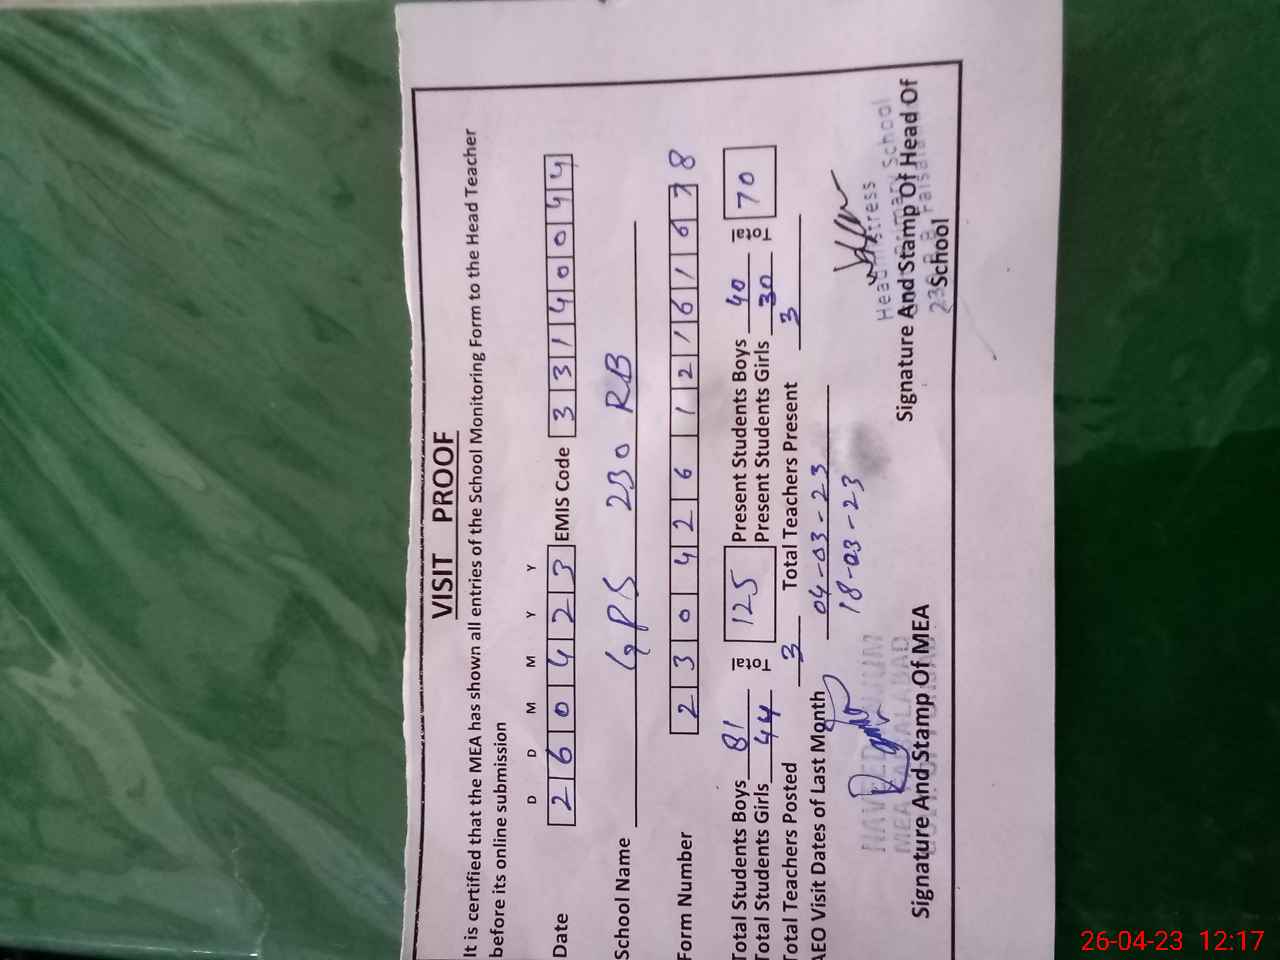 VISIT PROOF
It is certified that the MEA has shown all entries of the School Monitoring Form to the Head Teacher
before its online submission
D D M M Y Y
Date 2 6 0 4 2 3 EMIS Code 3 3 1 4 0 0 4 4
School Name GPS 230 RB
Form Number 2 3 0 4 2 6 1 2 1 6 1 6 7 8
Total Students Boys 81 Total 125 Present Students Boys 40 Total 70
Total Students Girls 44 Total Present Students Girls 30 Total
Total Teachers Posted 3 Total Teachers Present 3
AEO Visit Dates of Last Month 04-03-23
18-03-23
NAVEED
MEA FAISALABAD
Signature And Stamp Of MEA
Headmistress
Primary School
Signature And Stamp Of Head Of
School
26-04-23 12:17